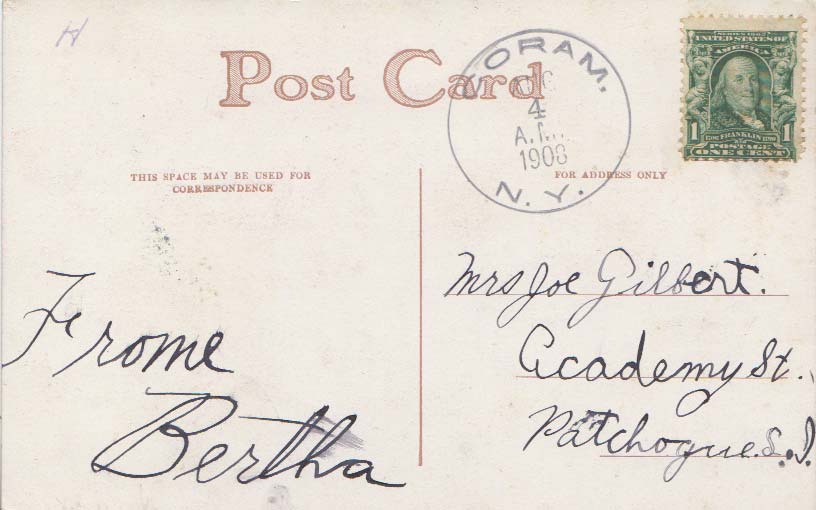 H
Post Card
CORAM.
AUG
4
A.M.
1908
N.Y.
SERIES 1902
UNITED STATES OF
AMERICA
1
1
FRANKLIN
POSTAGE
ONE CENT
THIS SPACE MAY BE USED FOR
CORRESPONDENCE
FOR ADDRESS ONLY
Frome
Bertha
Mrs Joe Gilbert.
Academy St.
Patchogue L.I.